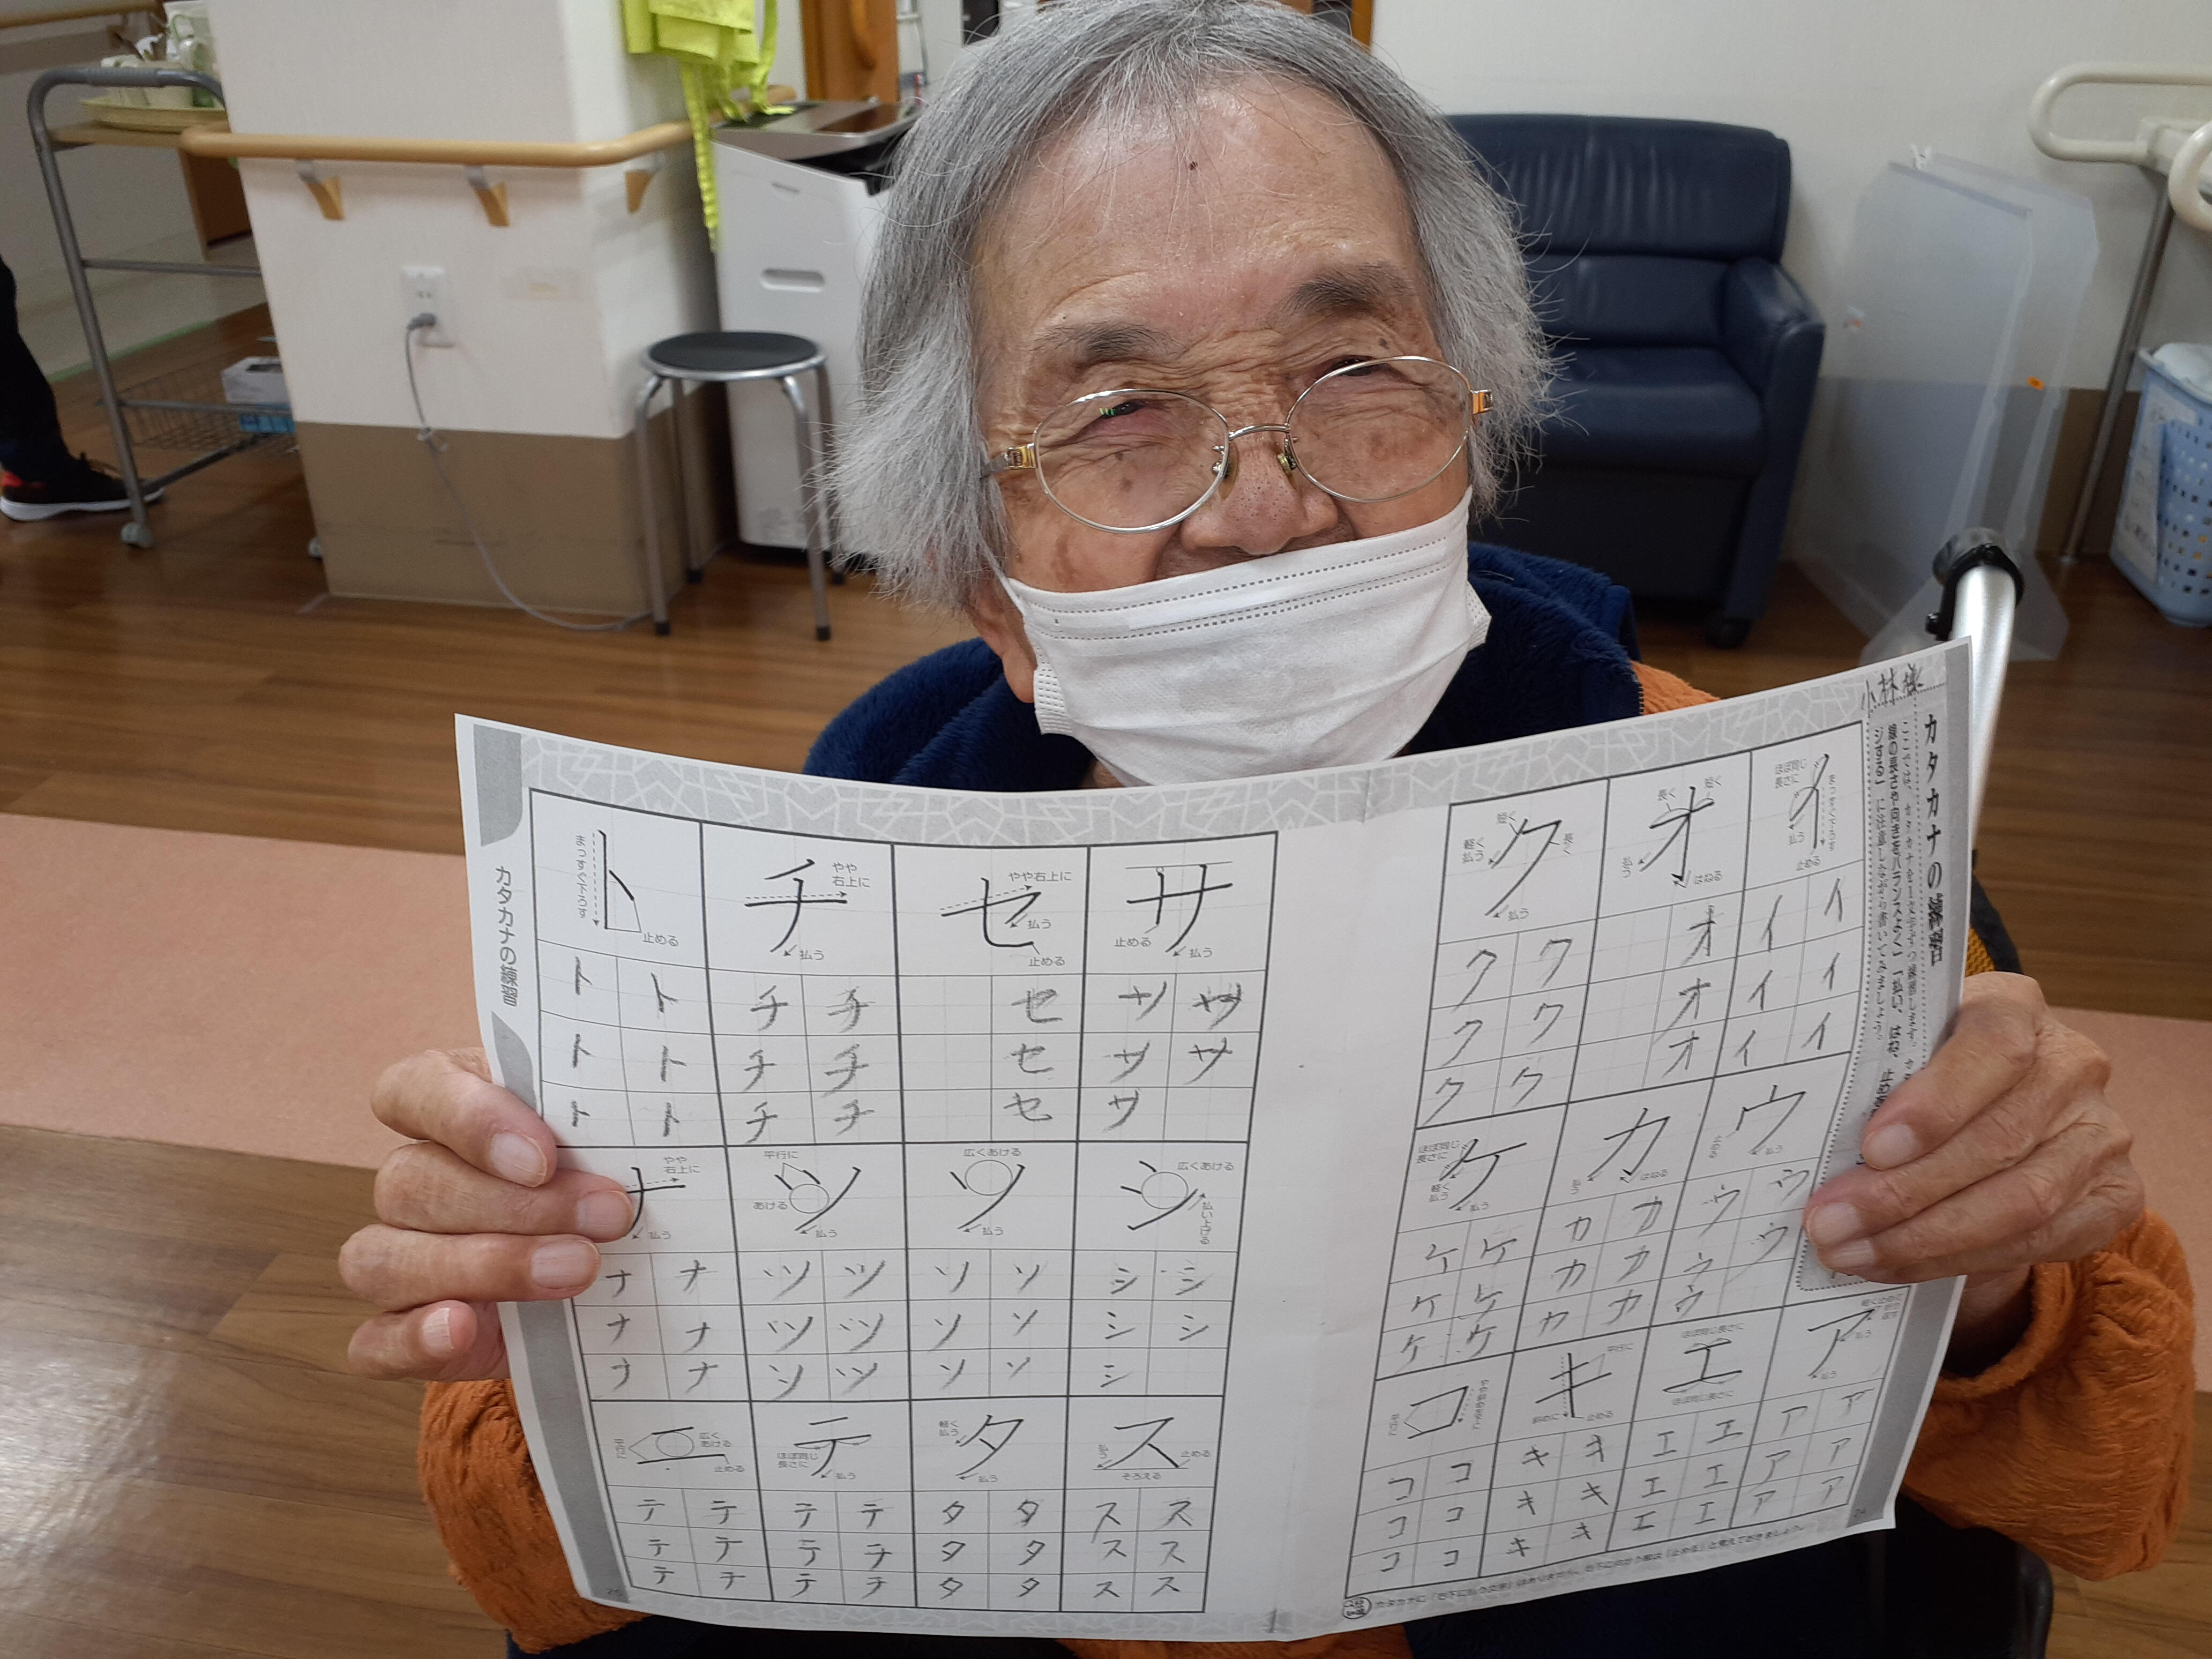 小林様
カタカナの練習
イ
ほぼ同じ
長さに
まっすぐ下ろす
払う
止める
イ イ
イ イ
イ イ
オ
長く
短く
払う
はねる
オ
オ
オ
ク
短く
長く
軽く
払う
払う
ク ク
ク ク
ク ク
ウ
止める
払う
ウ ウ
ウ ウ
ウ
カ
払う
はねる
カ カ
カ カ
カ カ
ケ
ほぼ同じ
長さに
軽く
払う
払う
ケ ケ
ケ ケ
ケ ケ
ア
払う
ア ア
ア ア
ア ア
エ
ほぼ同じ長さに
ほぼ同じ長さに
エ エ
エ エ
エ エ
キ
平行に
斜めに
止める
キ キ
キ キ
キ キ
コ
平行に
コ コ
コ コ
コ コ
24
サ
止める
払う
サ サ
サ サ
サ
セ
やや右上に
払う
止める
セ
セ
セ
チ
やや
右上に
払う
チ チ
チ チ
チ チ
ト
まっすぐ下ろす
止める
ト ト
ト ト
ト ト
シ
広くあける
払い上げる
シ シ
シ シ
シ
ソ
広くあける
払う
ソ ソ
ソ ソ
ソ ソ
ツ
平行に
あける
払う
ツ ツ
ツ ツ
ツ ツ
ナ
やや
右上に
払う
ナ ナ
ナ ナ
ナ ナ
ス
払う
止める
そろえる
ス ス
ス ス
ス ス
タ
軽く
払う
払う
タ タ
タ タ
タ タ
テ
ほぼ同じ
長さに
払う
テ テ
テ テ
テ テ
ニ
平行に
広く
あける
止める
テ テ
テ テ
テ テ
カタカナの練習
25